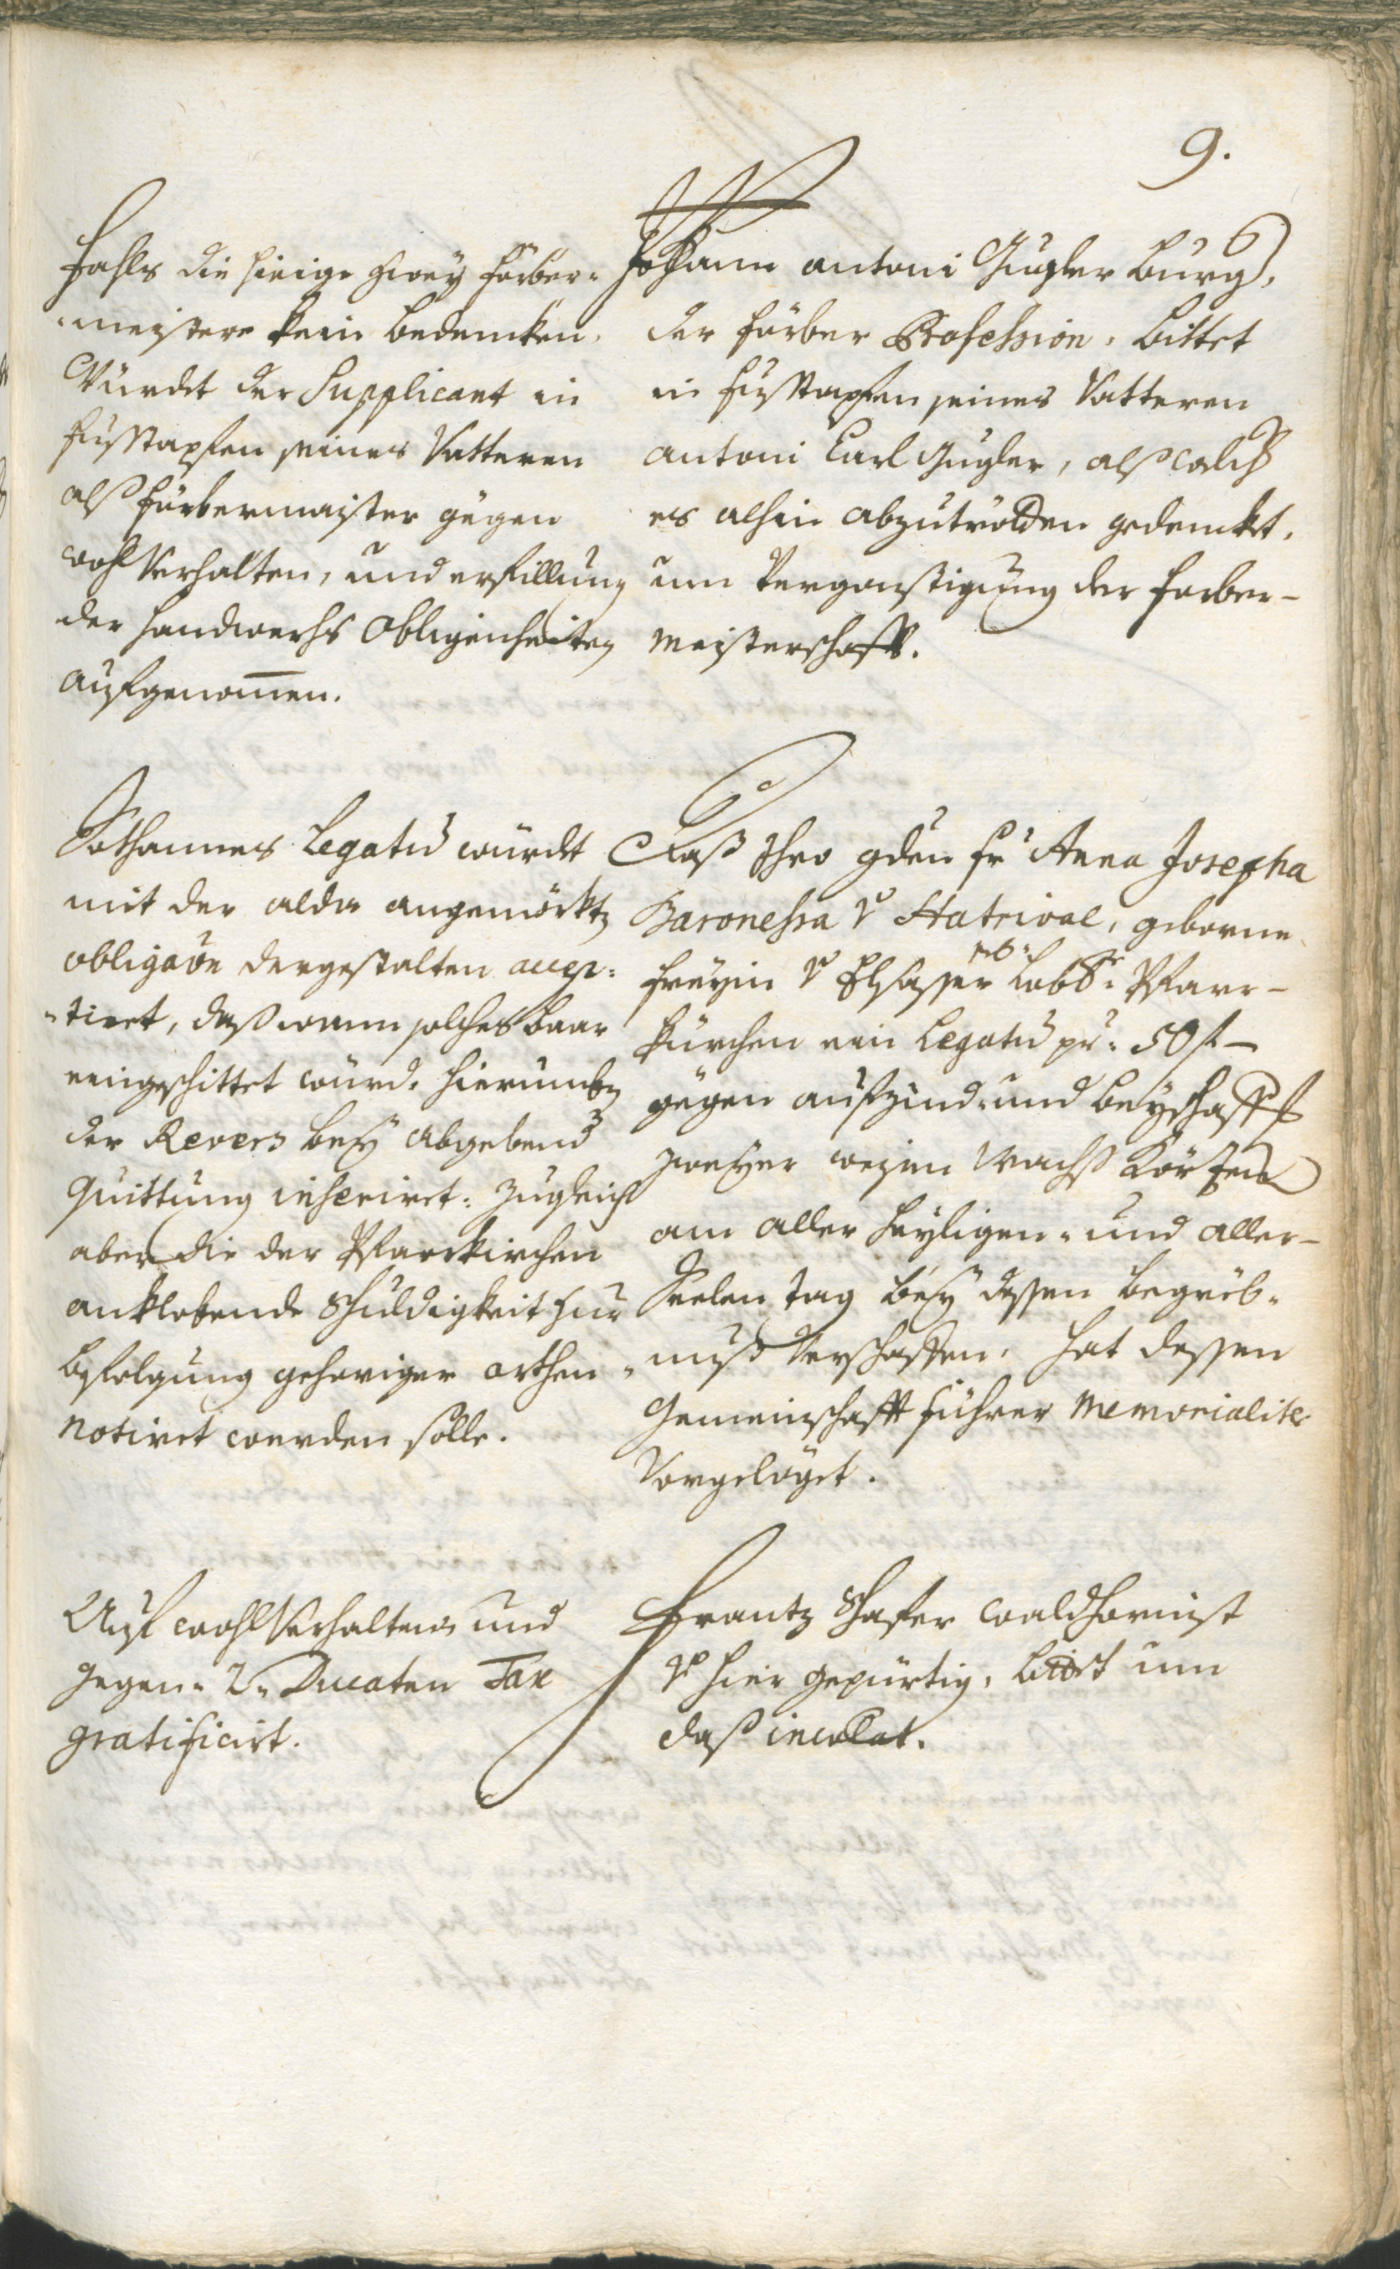 9.
Fahls die hieige zwey färber=
=meistere kein bedencken.
Würdet der Supplicant in
fusstapfen seines Vatteren
alß färbermaister gegen
wohl Verhalten, und erfillung
der handwerks Obligenheiten
aufgenomen.
Johann Antoni Gugler burg.
der färber Profession, bittet
in fusstapfen seines Vatteren
Antoni Carl Gugler, alß welch
es alhin abzutrötten gedenckt,
um Vergonstigung der farber-
meisterschafft.
Sothannes Legatū würdt
mit der alda angemörktn
obligaōn dergestalten accep=
=tiret, daß wann solches baar
eingeschittet würd, hierumben
der Revers bey abgebend
Quittung inseriret: zugleich
aber die der Pfarrkirchen
anklebende schuldigkeit zur
befolgung gehoriger orthen
notiret werden solle.
Daß Ihro gden fr Anna Josepha
Baronessa v Hatrival, geborne
freyin v Elsasser Löbl. Pfarr-
kürchen ein Legatū pr: 50 f
gegen aufzünd: und beyschaffung
zweyer weisen Wachß Körzen
am aller heyligen= und aller-
Seelen tag bey dessen begröb=
=nuß Verschaffen, hat dessen
Gemeinschafft führer Memorialiter
Vorgelöget.
Auf wohl Verhalten und
gegen 2 Ducaten Tax
gratificirt.
Frantz Schafer waldhornist
v hier gepürtig, bittet um
daß incolat.